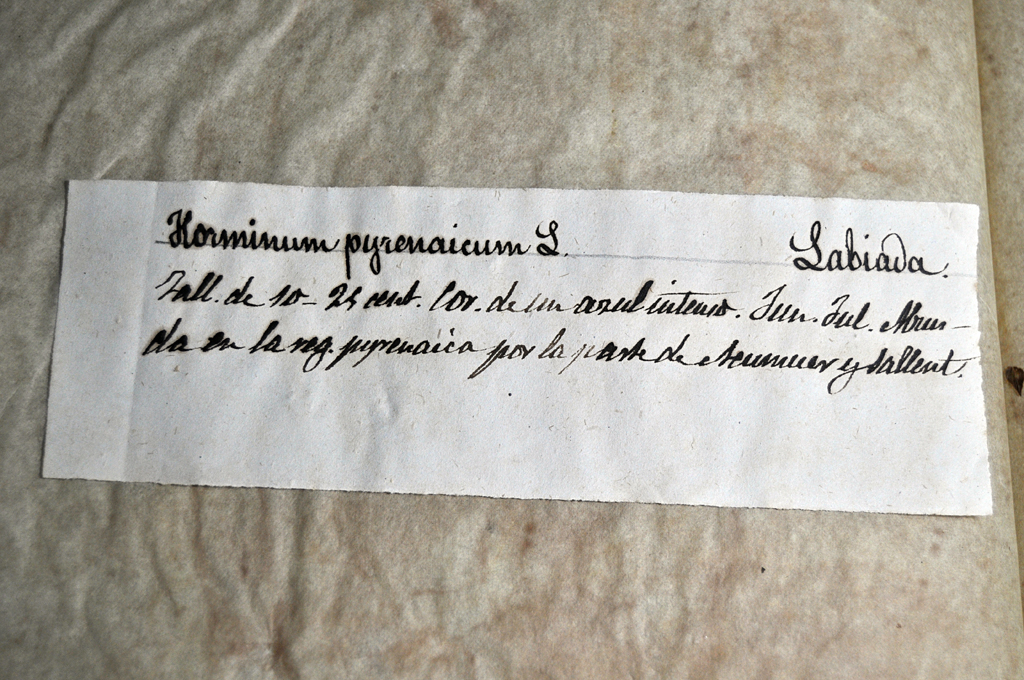 Horminum pyrenaicum L. Labiada.
Tall. de 10-25 cent. Cor. de un azul intenso. Jun. Jul. Abun-
da en la reg. pyrenaica por la parte de y Sallent.